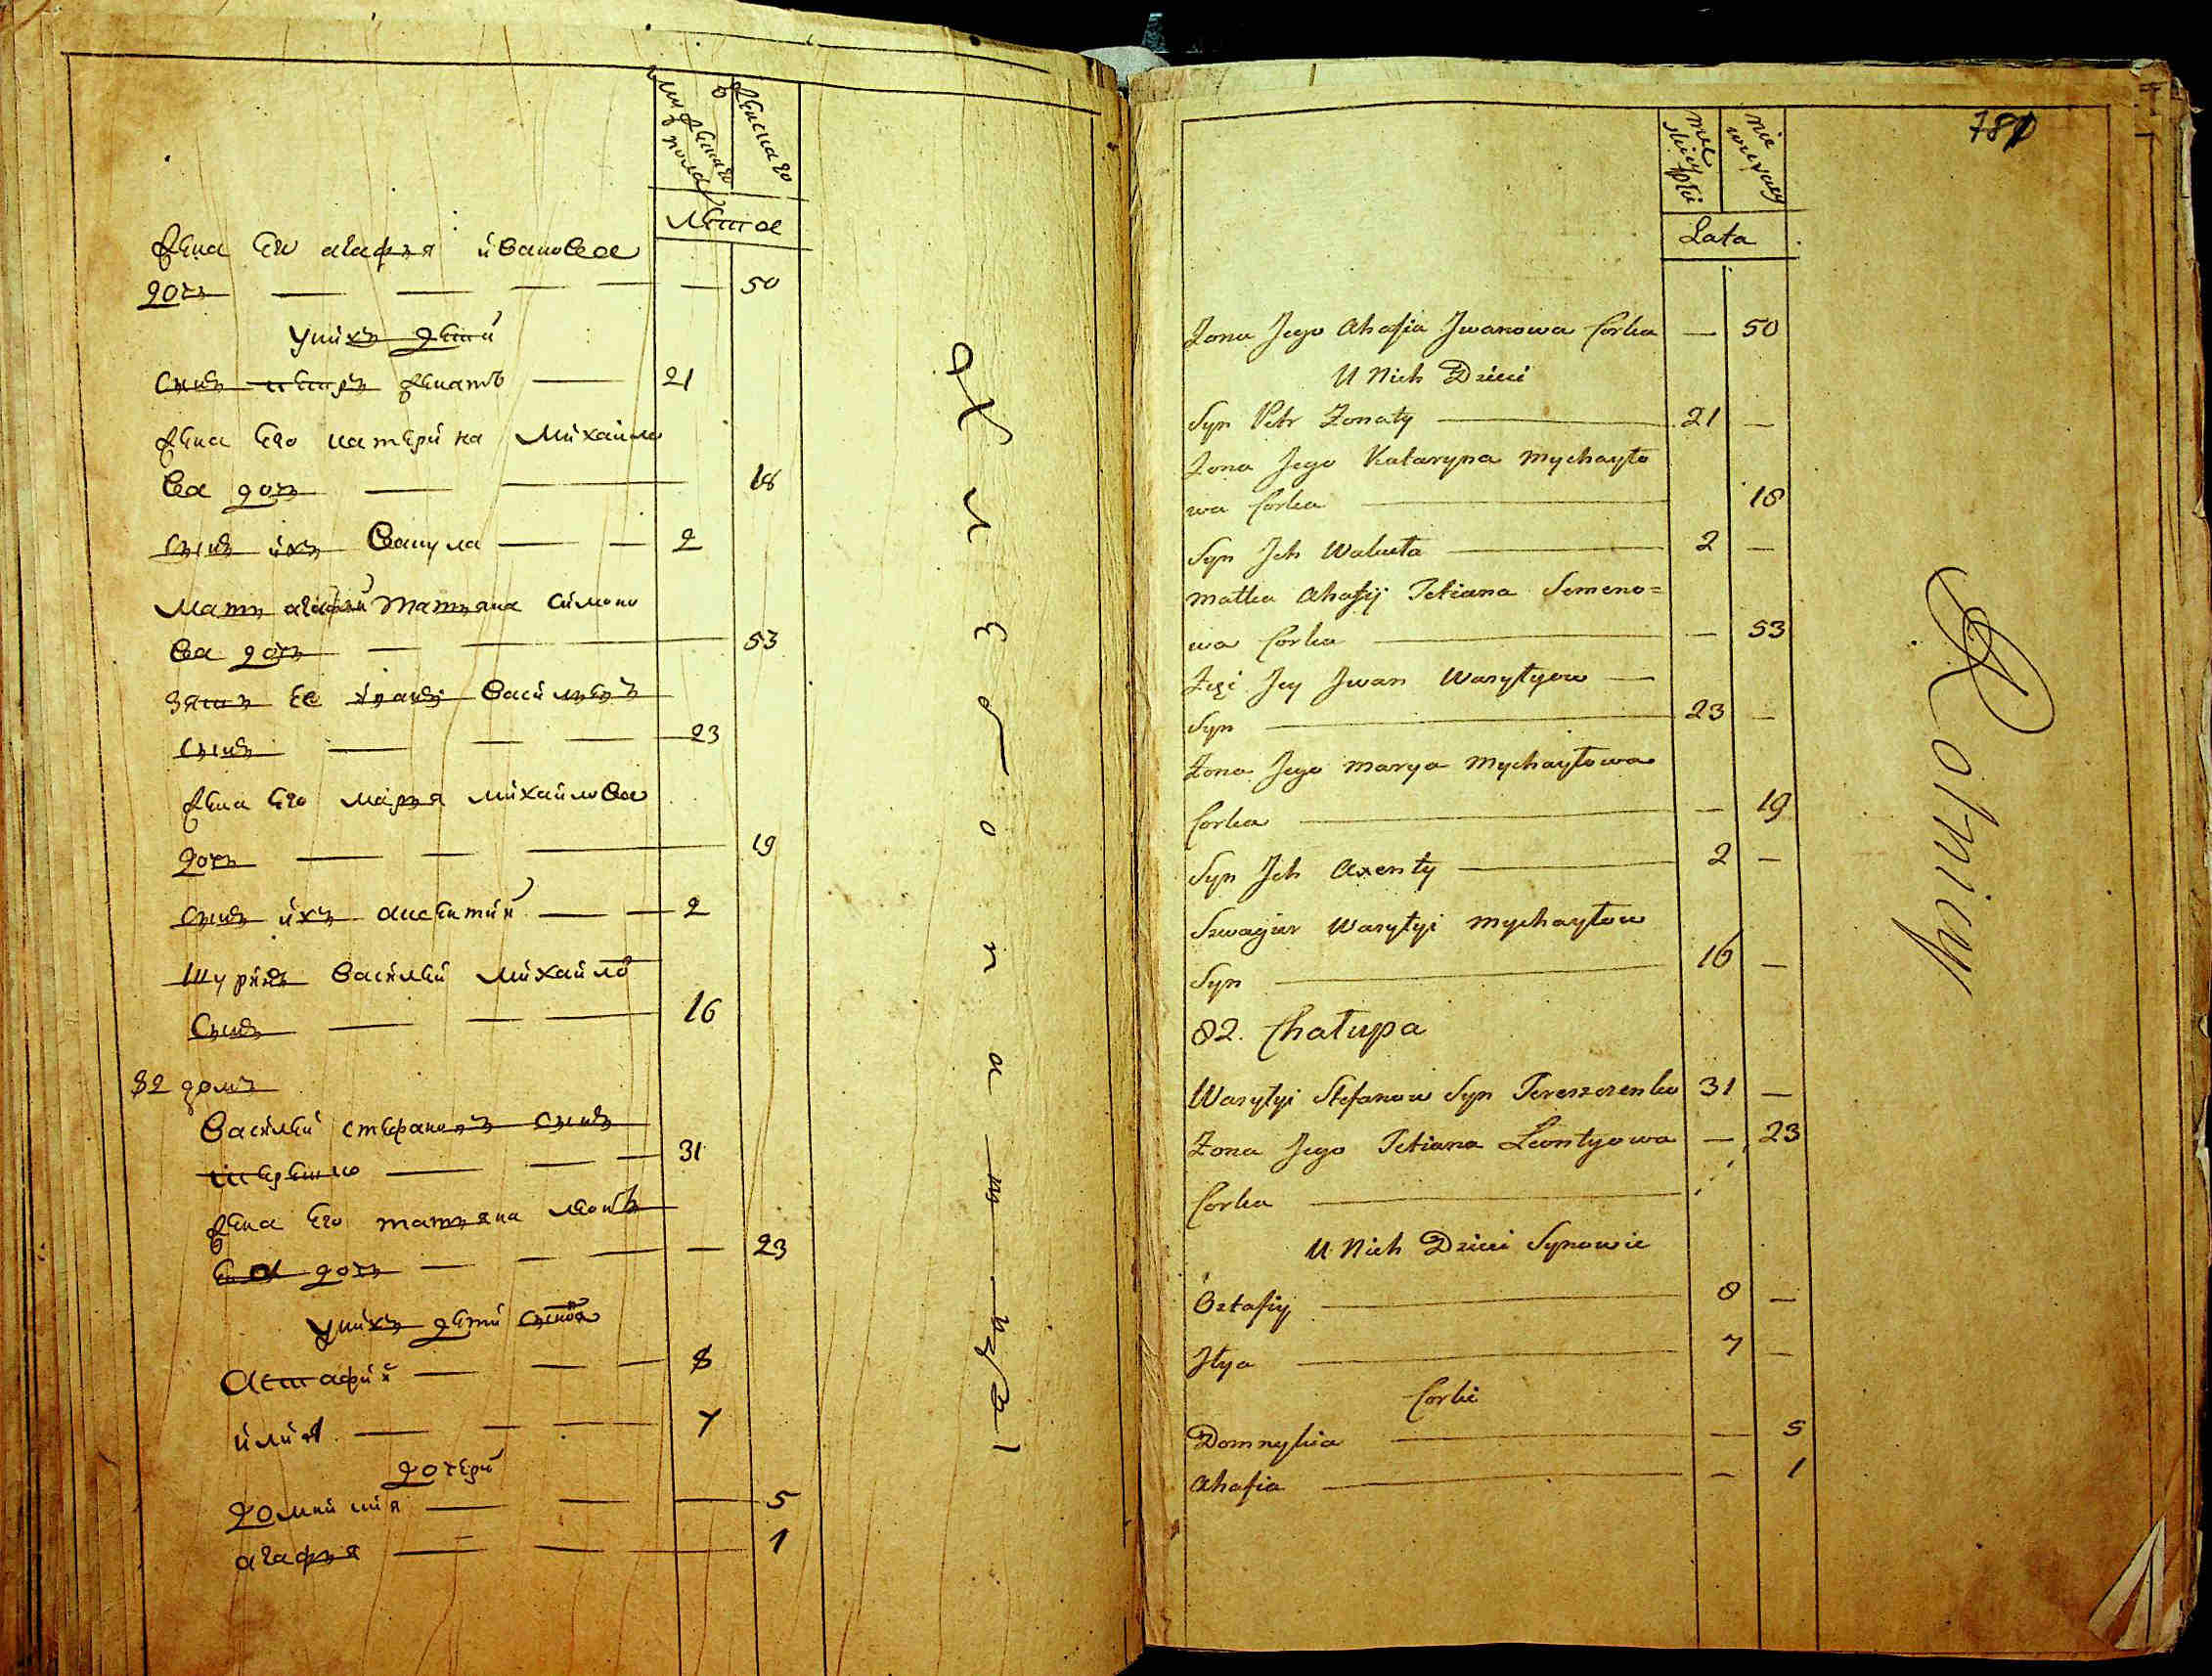 мужеска
женска
пола
Летъ
жена Его агафья ивановаа
дочь — — — — — 50
у нихъ дети
сынъ петръ женатъ — 21
жена Его катерина Михайло
ва дочь — — 18
сынъ ихъ Вакула — — 2
Мать агафьи татьяна симоно
ва дочь — — — 53
зять Ее иванъ василиевъ
сынъ — — — 23
жена Его марья михайлова
дочь — — — 19
сынъ ихъ аксентий — — 2
шуринъ василей михайло
сынъ — — — 16
82 домъ
василей стефановъ сынъ
терешко — — — 31
жена Его татьяна леонть
ева дочь — — — — 23
у нихъ дети сыновя
астафий — — — 8
илия — — — 7
дочери
домникия — — — 5
агафья — — — 1
781
męzkiey płci
niewieściey
Lata
Zona Jego Ahafia Jwanowa Corka — 50
U Nich Dzieci
Syn Petr Zonaty — 21 —
Zona Jego Kataryna Mychayło
wa Corka — 18
Syn Jch Wakuła — 2 —
Matka Ahafij Tetiana Semeno=
wa Corka — — 53
Zięć Jey Jwan Wasylyow —
Syn — 23 —
Zona Jego Marya Mychayłowa
Corka — — 19
Syn Jch Axenty — 2 —
Szwagier Wasylyi Mychayłow
Syn — 16 —
82. Chałupa
Wasylyi Stefanow Syn Tereszczenko 31 —
Zona Jego Tetiana Leontyowa — 23
Corka —
U Nich Dzieci Synowie
Ostafiy — 8 —
Jlya — 7 —
Corki
Domnykia — — 5
Ahafia — — 1
Rolnicy